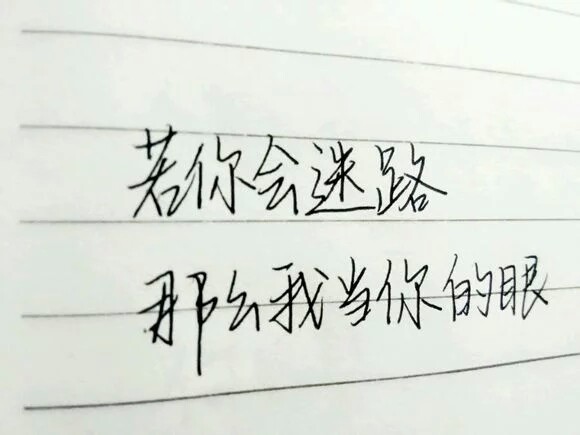 若你会迷路
那么我当你的眼